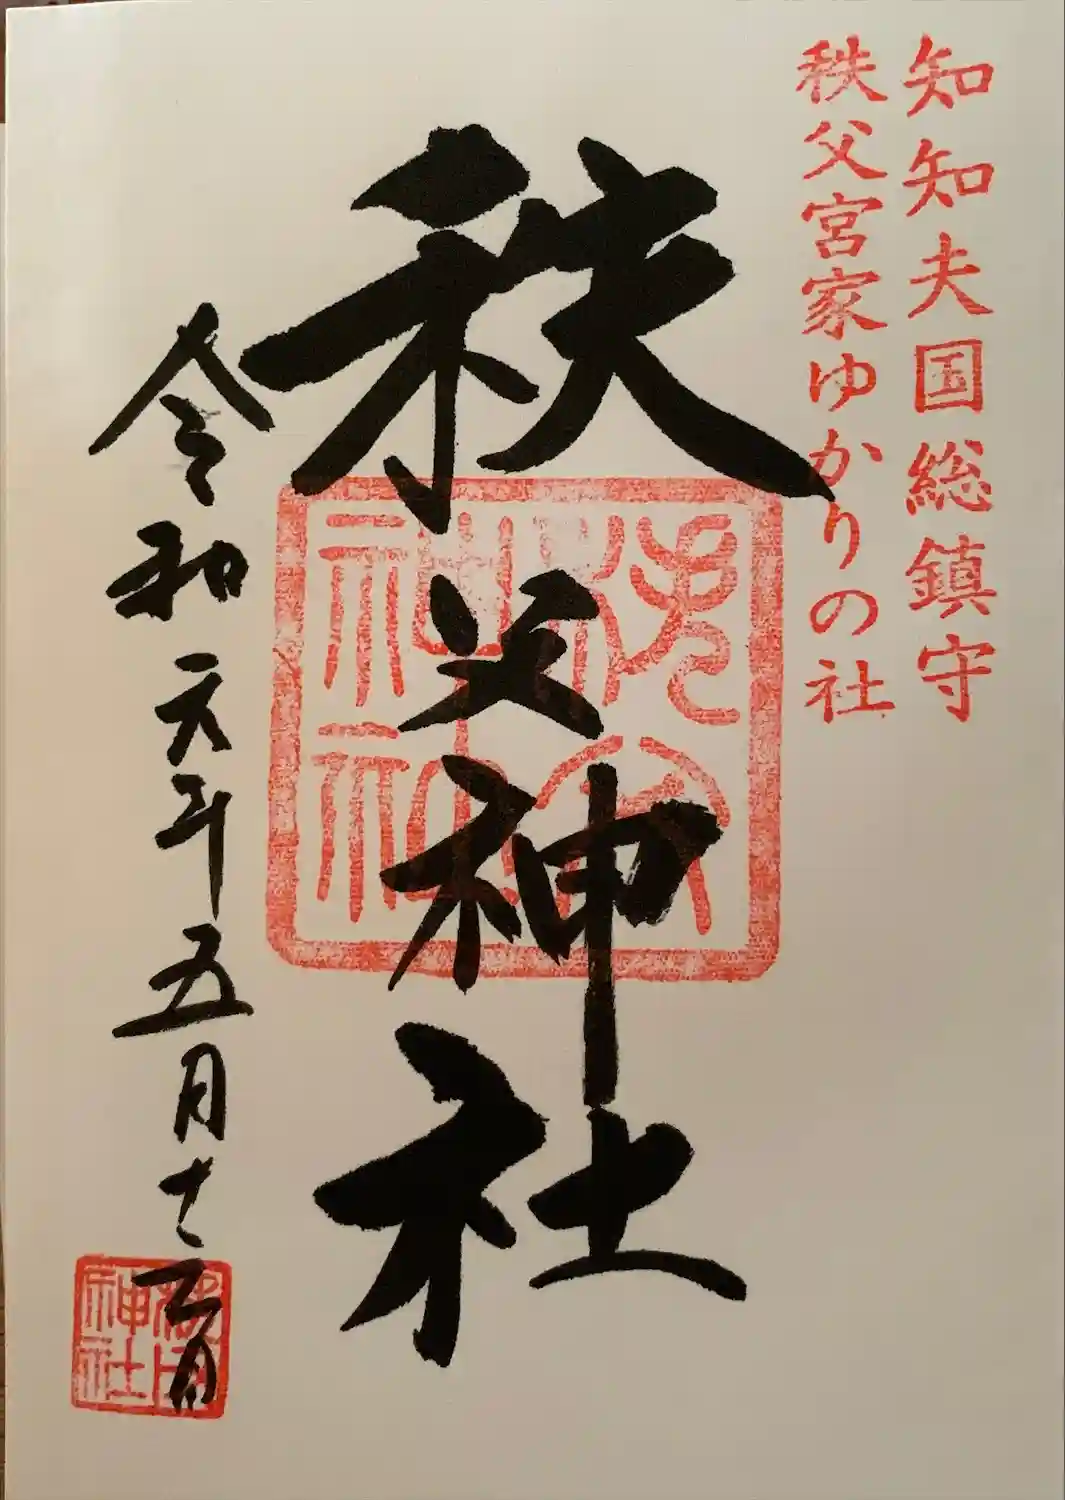 知知夫国総鎮守
秩父宮家ゆかりの社
秩父神社
秩父神社
令和元年五月十二日
神社